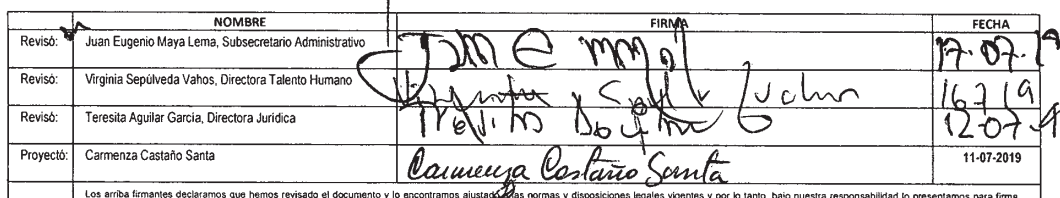 NOMBRE FIRMA FECHA
Revisó: Juan Eugenio Maya Lema, Subsecretario Administrativo 17-07-19
Revisó: Virginia Sepúlveda Vahos, Directora Talento Humano 16 7 19
Revisó: Teresita Aguilar García, Directora Jurídica 12-07-19
Proyectó: Carmenza Castaño Santa Carmenza Castaño Santa 11-07-2019
Los arriba firmantes declaramos que hemos revisado el documento y lo encontramos ajustado a las normas y disposiciones legales vigentes y por lo tanto, bajo nuestra responsabilidad lo presentamos para firma.